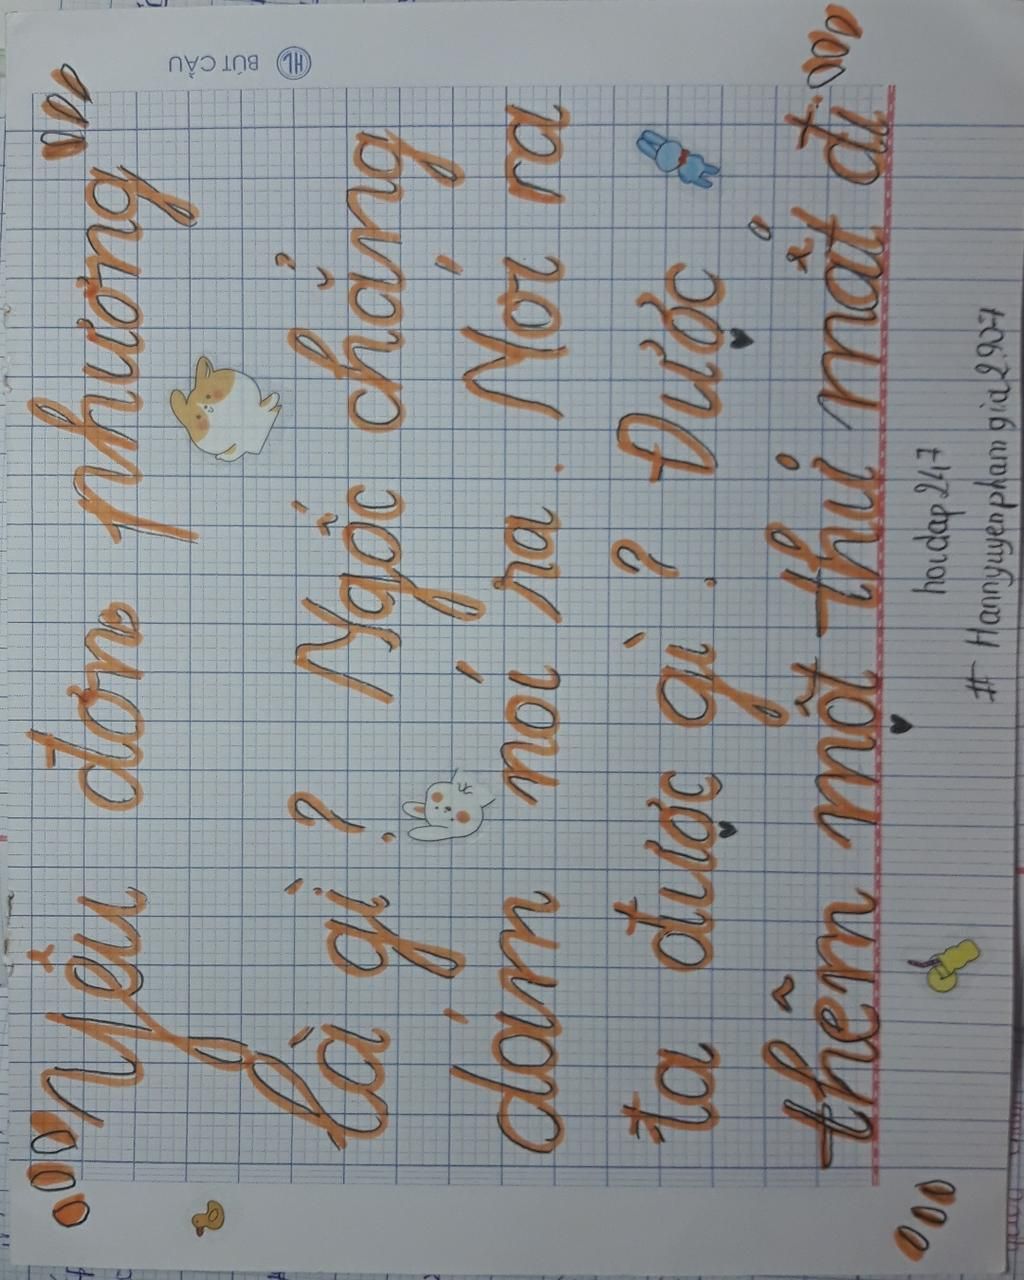 Yêu đơn phương
là gì? Ngốc chẳng
dám nói ra. Nói ra
ta được gì? Được
thêm một thứ mất đi
hoidap247
# Hannyuyenphamgia2907
BÚT CẦU
HL